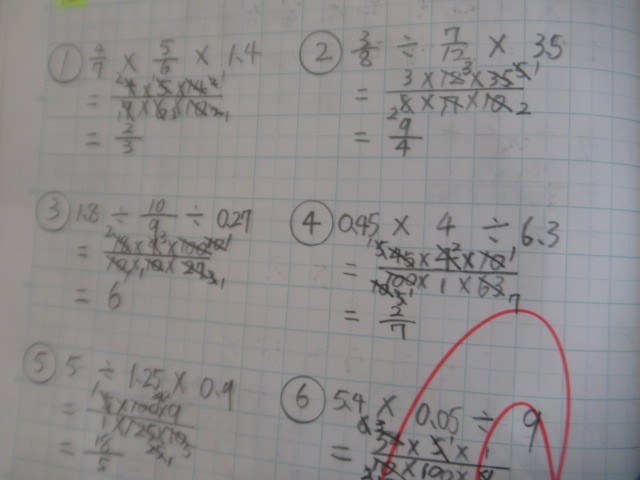 ① 4/7 × 5/6 × 1.4
= 4×5×14 / 7×6×10
= 2/3
② 3/8 ÷ 7/12 × 3.5
= 3×12×35 / 8×7×10
= 9/4
③ 1.8 ÷ 10/9 ÷ 0.27
= 18×9×100 / 10×10×27
= 6
④ 0.45 × 4 ÷ 6.3
= 45×4×10 / 100×1×63
= 2/7
⑤ 5 ÷ 1.25 × 0.9
= 5×100×9 / 1×125×10
= 18/5
⑥ 5.4 × 0.05 ÷ 9